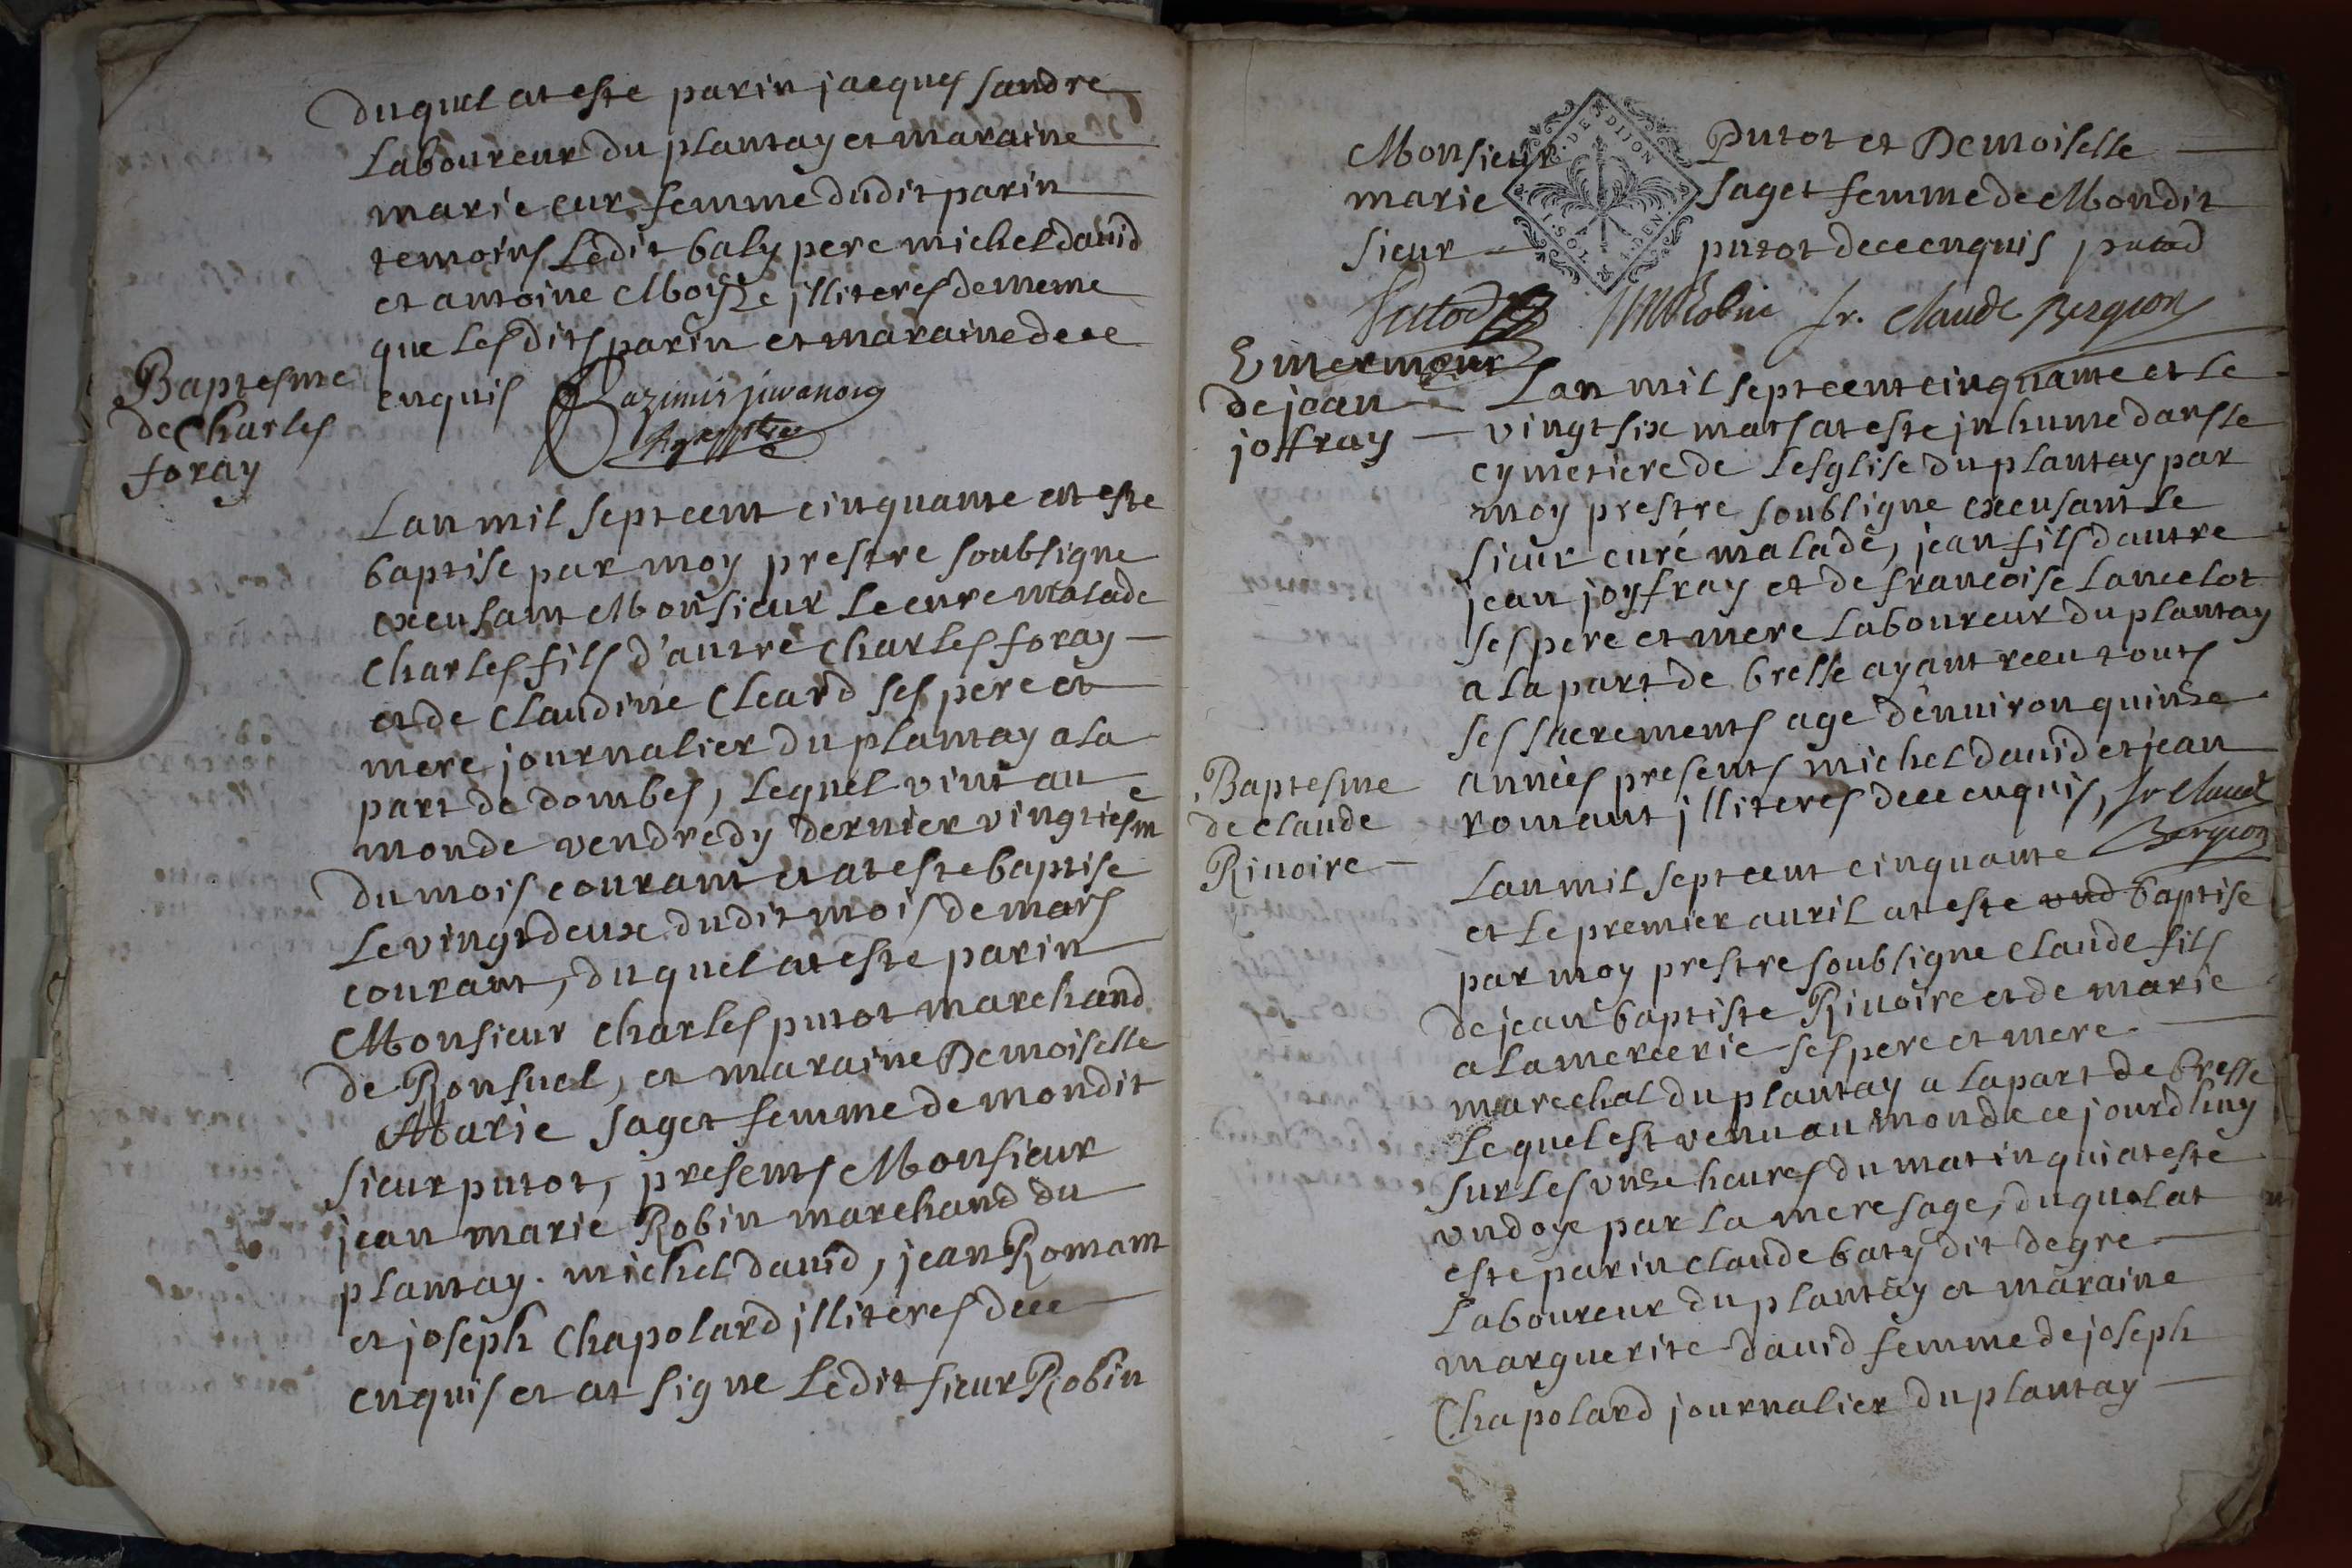 duquel at este parin jacques sandre
Laboureur du plantay et maraine
marie cur femme dudit parin
temoins Ledit baly pere michel david
et antoine Moisze jlliteres de meme
que Lesdits parin et maraine de ce
enquis
Baptesme
de Charles
foray
Lan mil sept cent cinquante at este
baptise par moy prestre soubsigne
excusant Monsieur Le cure malade
Charles fils d'autre Charles foray
et de Claudine Cleard ses pere et
mere journalier du plantay a La
part de dombes, Lequel vint au
monde vendredy dernier vingtiesme
du mois courant et at este baptise
Le vingt deux dudit mois de mars
courant, duquel at este parin
Monsieur Charles putot marchand
de Ronsuel, et maraine Demoiselle
Marie saget femme de mondit
sieur putot, presents Monsieur
jean marie Robin marchand du
plantay. michel david, jean Romant
et joseph Chapolard jlliteres de ce
enquis et at signe Ledit sieur Robin
Monsieur Putot et Demoiselle
marie saget femme de Mondit
sieur putot de ce enquis putod
G. DE DIJON
1 SOL 4 DEN.
Putod JM Robin fr. Claude Bergeon
Enterment
de jean
joffray
Lan mil sept cent cinquante et Le
vingt six mars at este jnhume dans Le
cymetiere de Lesglise du plantay par
moy prestre soubsigne excusant Le
sieur curé malade, jean fils dautre
jean joyfray et de francoise Lancelot
ses pere et mere Laboureur du plantay
a La part de bresse ayant receu touts
ses sacrements age denuiron quinze
années presents michel david et jean
romant jlliteres de ce enquis, fr Claude
Bergeon
Baptesme
de claude
Riuoire
Lan mil sept cent cinquante
et Le premier auril at este ond baptise
par moy prestre soubsigne claude fils
de jean baptiste Riuoire et de marie
a La mercerie ses pere et mere
marechal du plantay a La part de bresse
Lequel est venu au monde ce jourdhuy
sur Les vnze heures du matin qui at este
vndoye par La mere sage, duquel at
este parin claude baty dit degre
Laboureur du plantay et maraine
marguerite david femme de joseph
Chapolard journalier du plantay